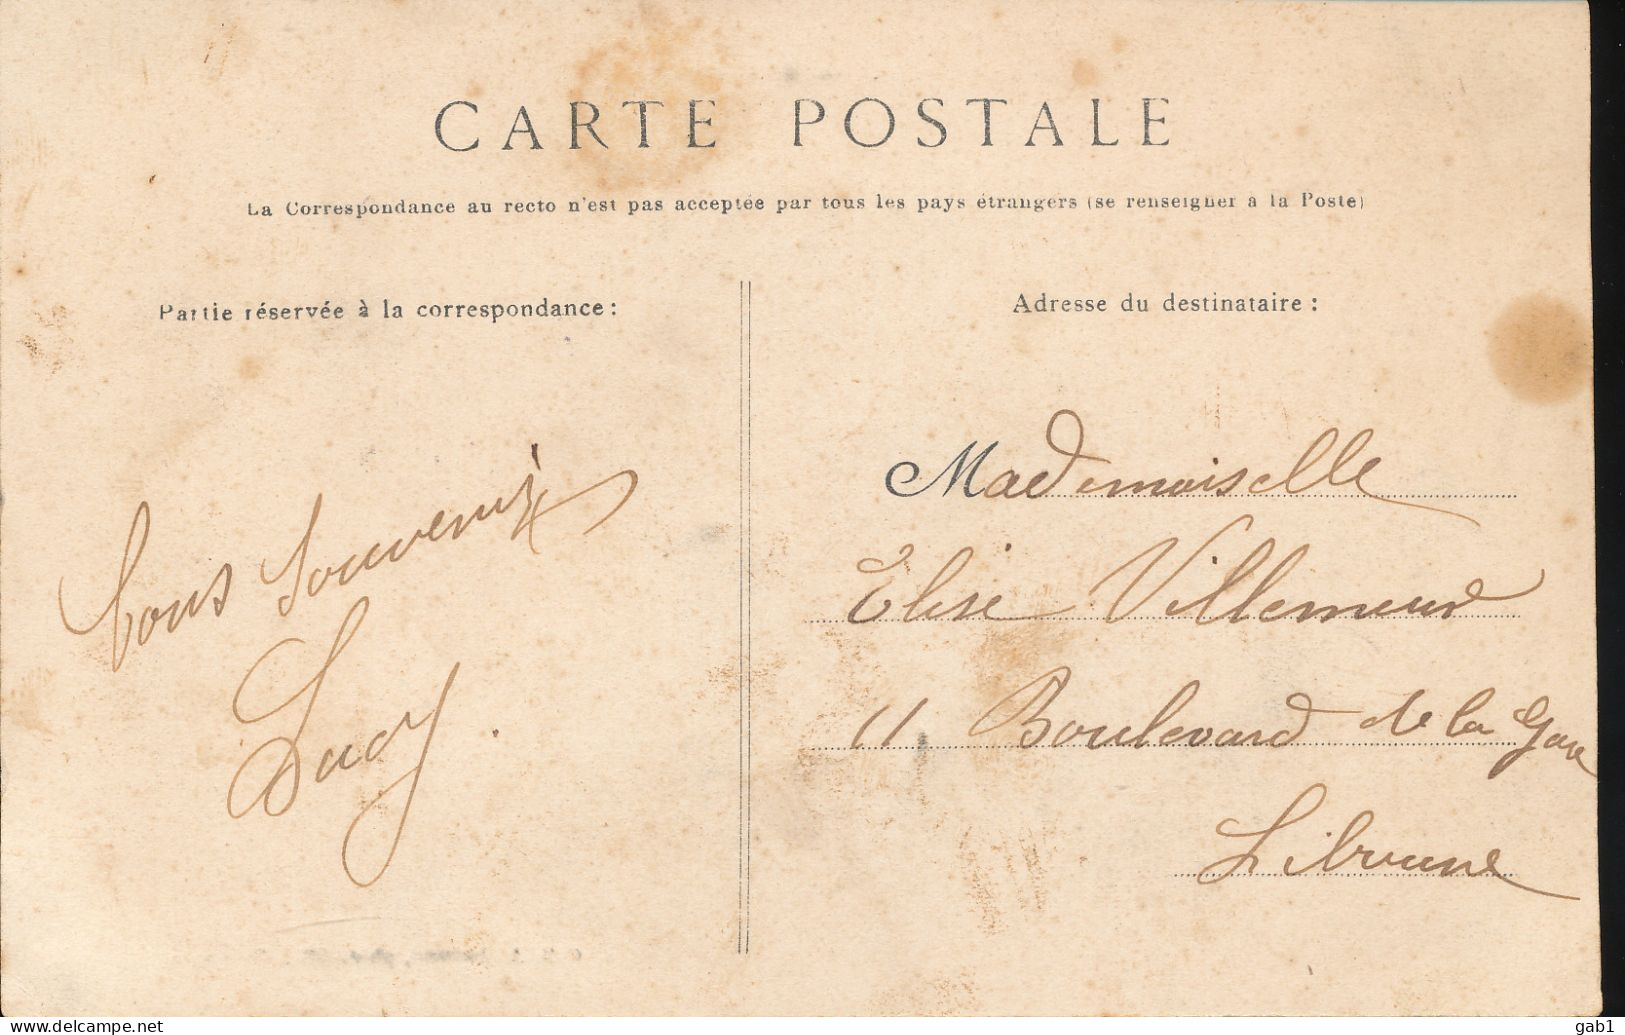 CARTE POSTALE
La Correspondance au recto n'est pas acceptée par tous les pays étrangers (se renseigner à la Poste)
Partie réservée à la correspondance :
bons souvenirs
Lucy.
Adresse du destinataire :
Mademoiselle
Elise Villemeur
11 Boulevard de la Gare
Libourne
gab1
www.delcampe.net